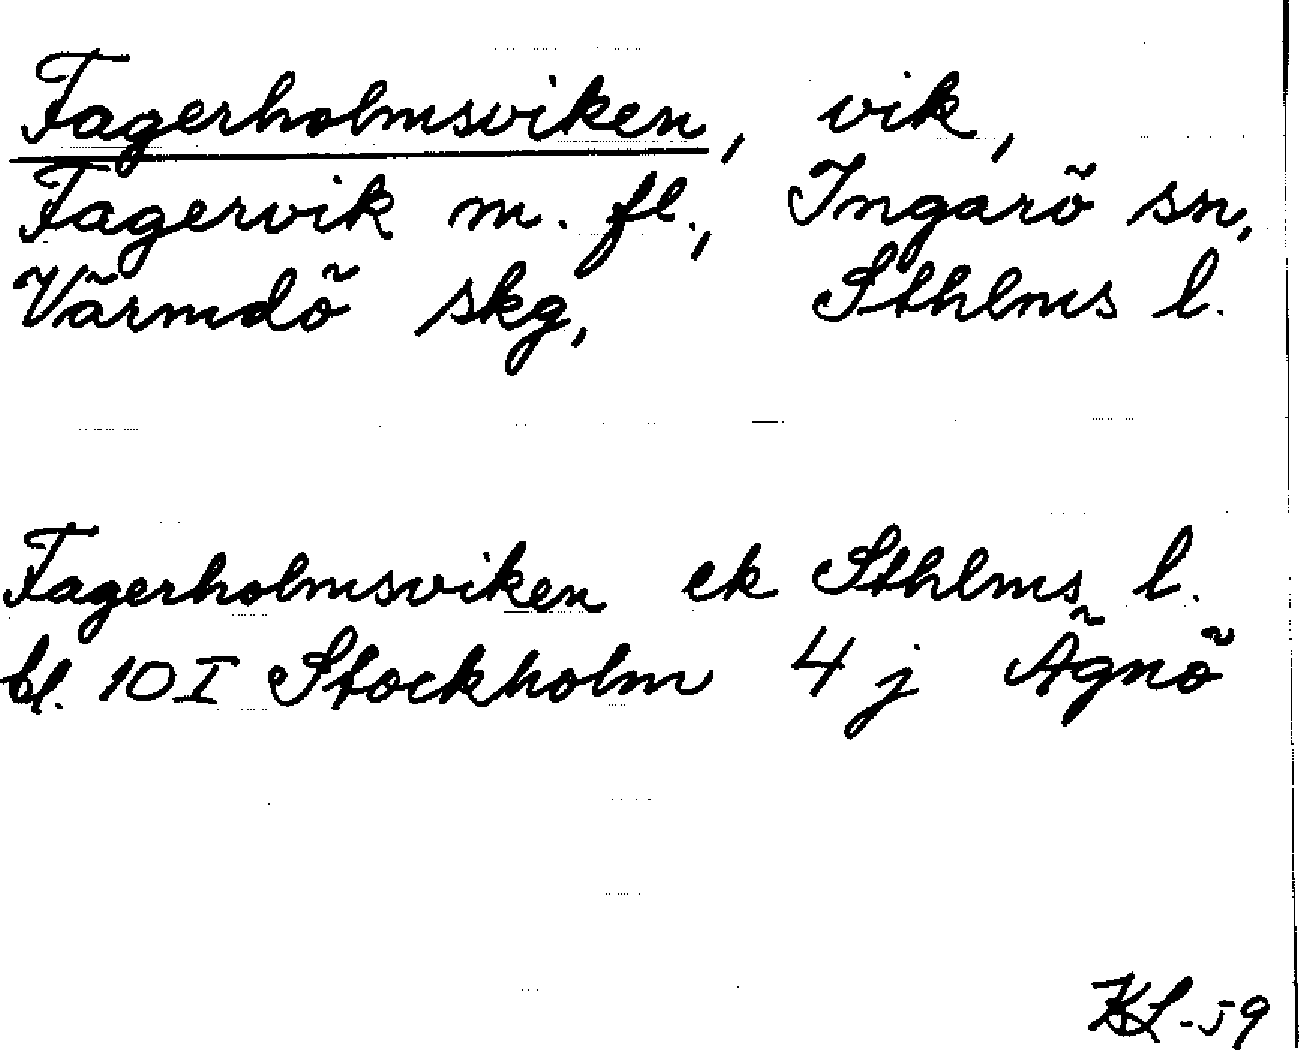 Fagerholmsviken, vik,
Fagervik m. fl., Ingarö sn,
Värmdö skg, Sthlms l.
Fagerholmsviken ek Sthlms l.
bl. 10 I Stockholm 4 j Ägnö
KL-59